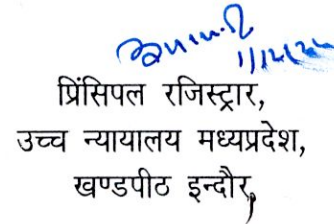 प्रिंसिपल रजिस्ट्रार,
उच्च न्यायालय मध्यप्रदेश,
खण्डपीठ इन्दौर